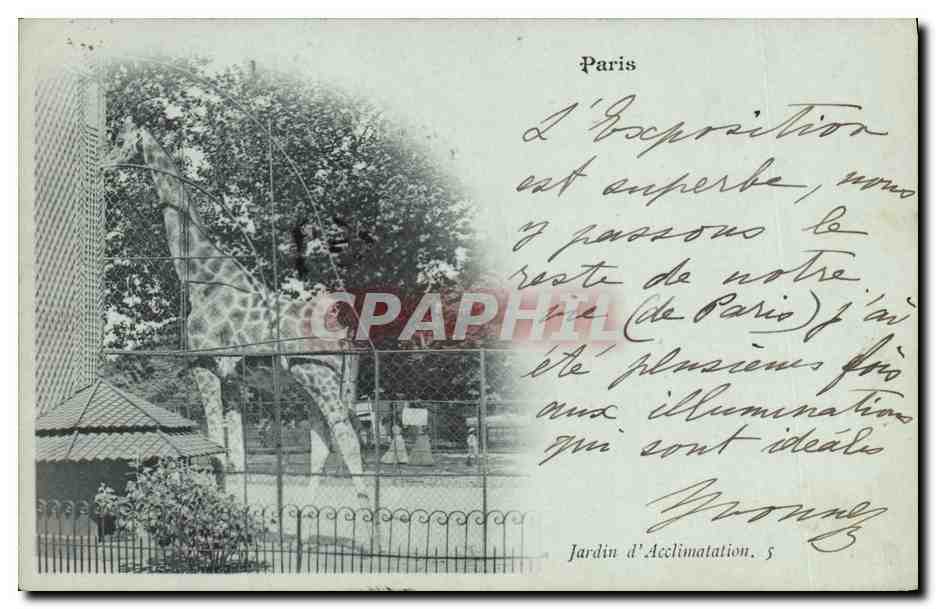 Paris
L'Exposition
est superbe, nous
y passons le
reste de notre
vie (de Paris) j'ai
été plusieurs fois
aux illuminations
qui sont idéales
Yvonne
CPAPHIL
Jardin d'Acclimatation. 5